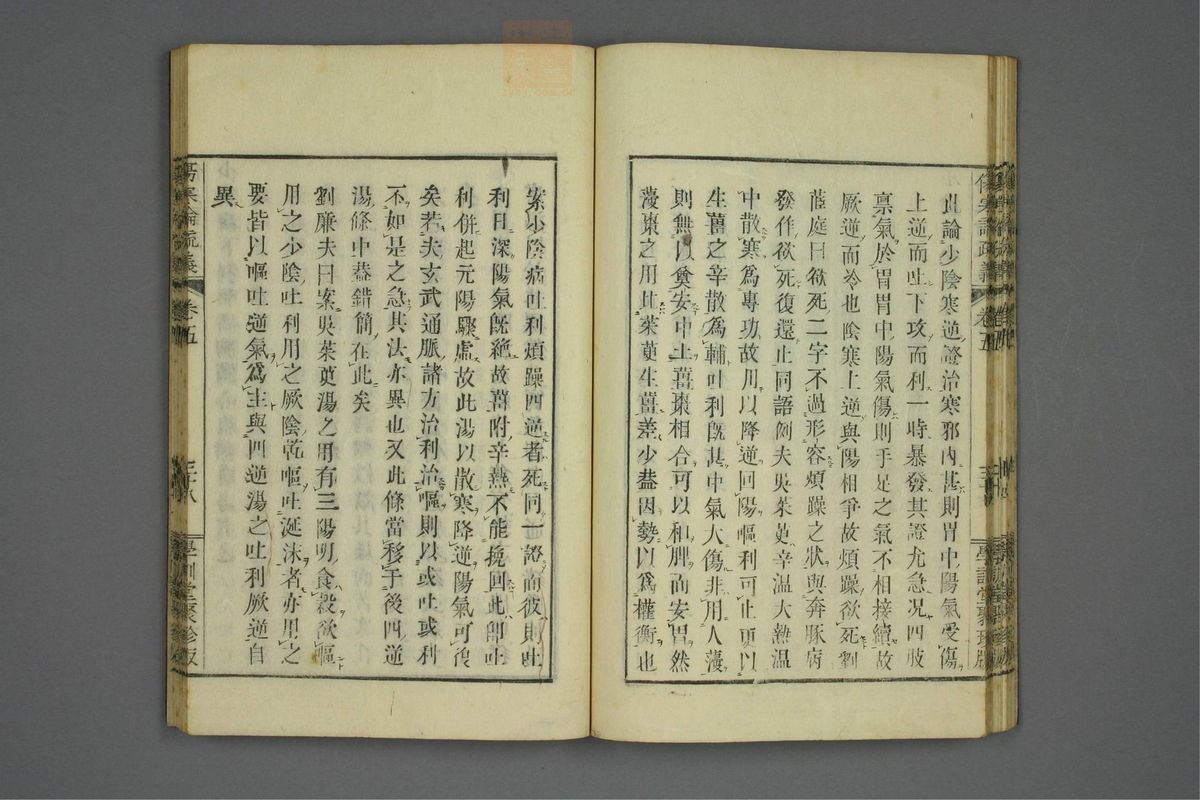 此論少陰寒逆證治寒邪內甚則胃中陽氣受傷
上逆而吐下攻而利一時暴發其證尤急况四肢
禀氣於胃胃中陽氣傷則手足之氣不相接續故
厥逆而冷也陰寒上逆與陽相爭故煩躁欲死劉
茝庭曰欲死二字不過形容煩躁之狀與奔豚病
發作欲死復還止同語例夫吳茱萸辛温大熱温
中散寒爲專功故用以降逆回陽嘔利可止更以
生薑之辛散爲輔吐利旣甚中氣大傷非用人薓
則無以奠安中土薑棗相合可以和脾而安胃然
薓棗之用比茱萸生薑差少葢因勢以爲權衡也
傷寒論疏義
卷五
學訓堂聚珍版
案少陰病吐利煩躁四逆者死同一證而彼則吐
利日深陽氣旣絶故薑附辛熱不能挽回此卽吐
利併起元陽驟虛故此湯以散寒降逆陽氣可復
矣若夫玄武通脈諸方治利治嘔則以或吐或利
不如是之急其法亦異也又此條當移于後四逆
湯條中葢錯簡在此矣
劉廉夫曰案吳茱萸湯之用有三陽明食穀欲嘔
用之少陰吐利用之厥陰乾嘔吐涎沫者亦用之
要皆以嘔吐逆氣爲主與四逆湯之吐利厥逆自
異
傷寒論疏義
卷五
三十八
學訓堂聚珍版